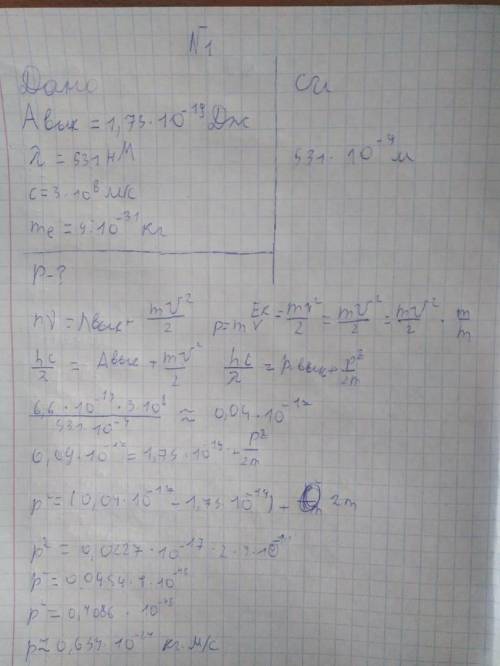 №1
Дано
СИ
Aвых = 1,73·10⁻¹⁹ Дж
λ = 531 нм
531·10⁻⁹ м
c = 3·10⁸ м/с
mₑ = 9·10⁻³¹ кг
p-?
hν = Aвых + mV²/2 p = mV Eк = mV²/2 = mV²/2 = mV²/2 · m/m
hc/λ = Aвых + mV²/2 hc/λ = Aвых + p²/2m
≈ 0,04·10⁻¹⁷
0,04·10⁻¹⁷ = 1,73·10⁻¹⁹ + p²/2m
p² = (0,04·10⁻¹⁷ - 1,73·10⁻¹⁹) · 2m
p² = 0,0227·10⁻¹⁷·2·9·10
p² = 0,0454·9·10⁻⁴⁸
p² = 0,4086·10⁻⁴⁸
p ≈ 0,639·10⁻²⁴ кг·м/с